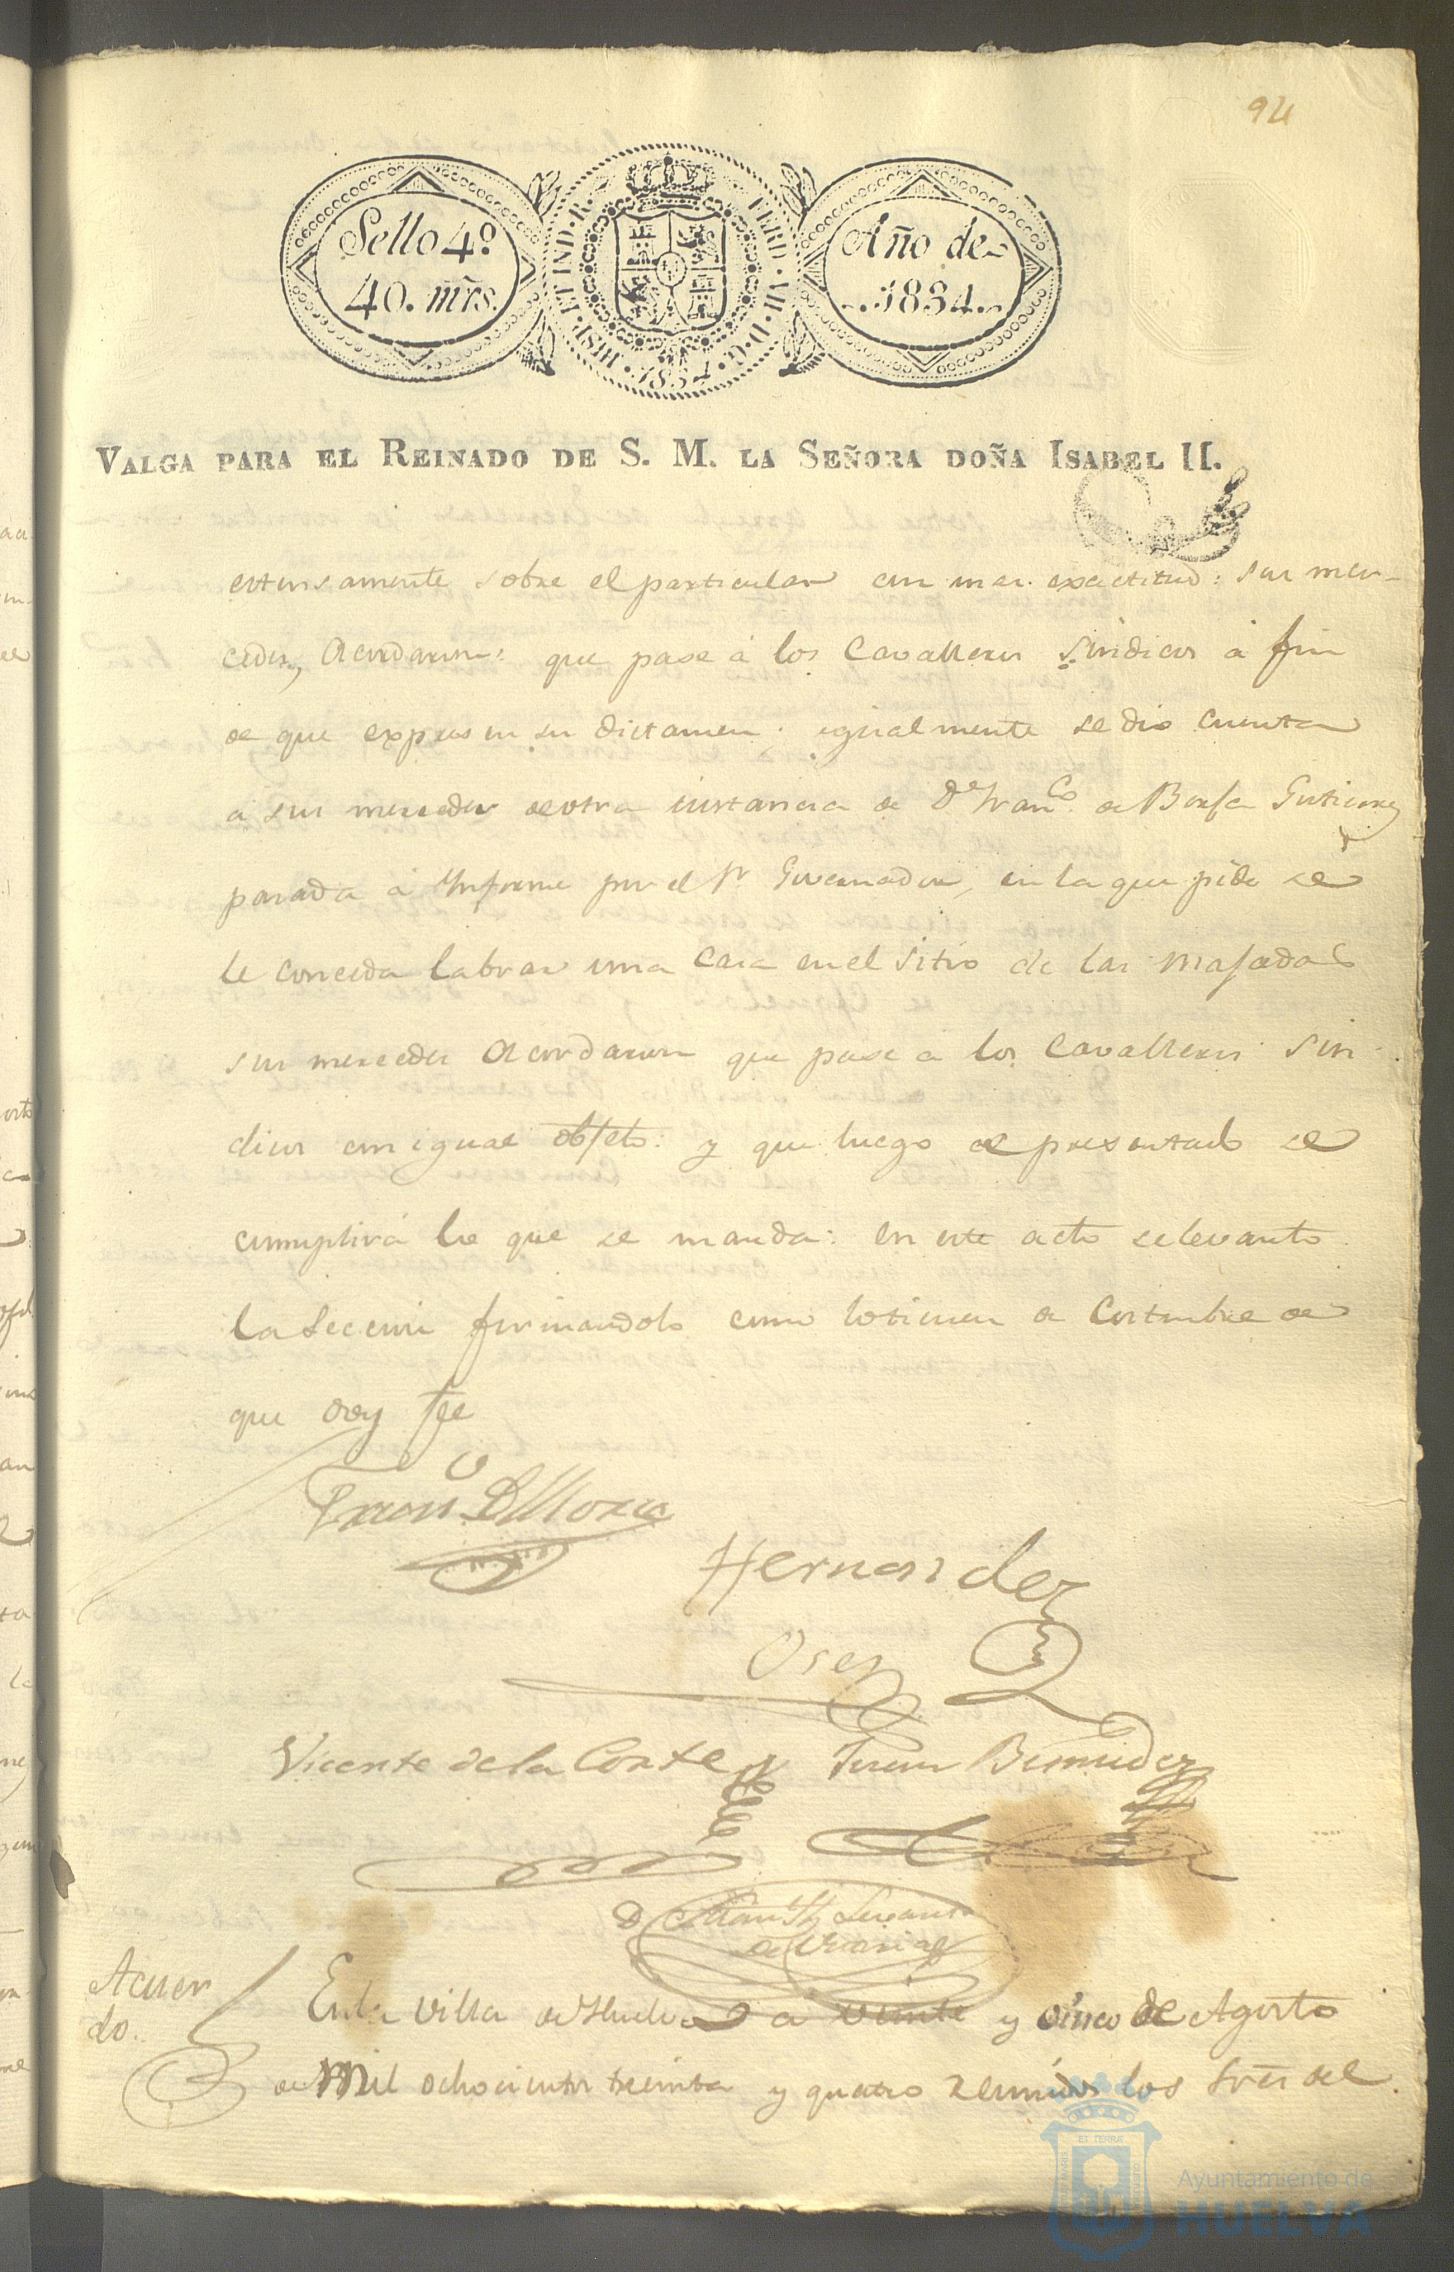 94
Sello 4º
40. mrs.
HISP. ET IND. R. FERD. VII. D. G. 1834
Año de
1834.
VALGA PARA EL REINADO DE S. M. LA SEÑORA DOÑA ISABEL II.
estensamente sobre el particular con mas exactitud: sus mer-
cedes, Acordaron: que pase á los Cavalleros Sindicos á fin
de que expresen su dictamen: igualmente se dio cuenta
a sus mercedes de otra instancia de Dn Franco de Borja Gutierrez
pasada á Informe por el Sr Governador, en la que pide se
le conceda labrar una Casa en el Sitio de las Majadas
sus mercedes Acordaron que pase a los Cavalleros Sin
dicos con igual objeto: y que luego de presentado se
cumplirá lo que se manda: en este acto se levanto
la Seccion firmandolo como lo tienen de Costumbre de
que doy fee
Franco D Mora
Hernandez
Vicente de la Corte
Juan Bermudez
Acuer
do.
En la Villa de Huelva á veinte y cinco de Agosto
de Mil ochocientos treinta y quatro reunidos los Sres del
ET TERRAE
Ayuntamiento de
HUELVA